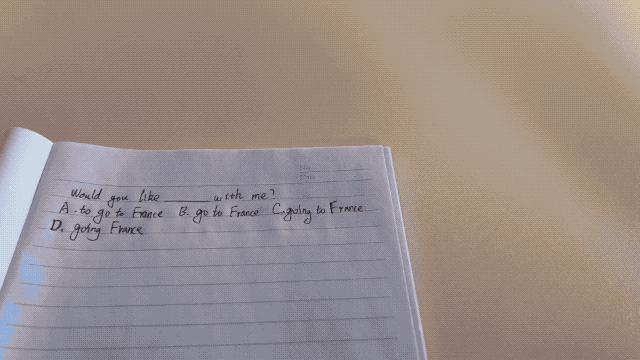 Would you like ______ with me?
A. to go to France B. go to France C. going to France
D. going France